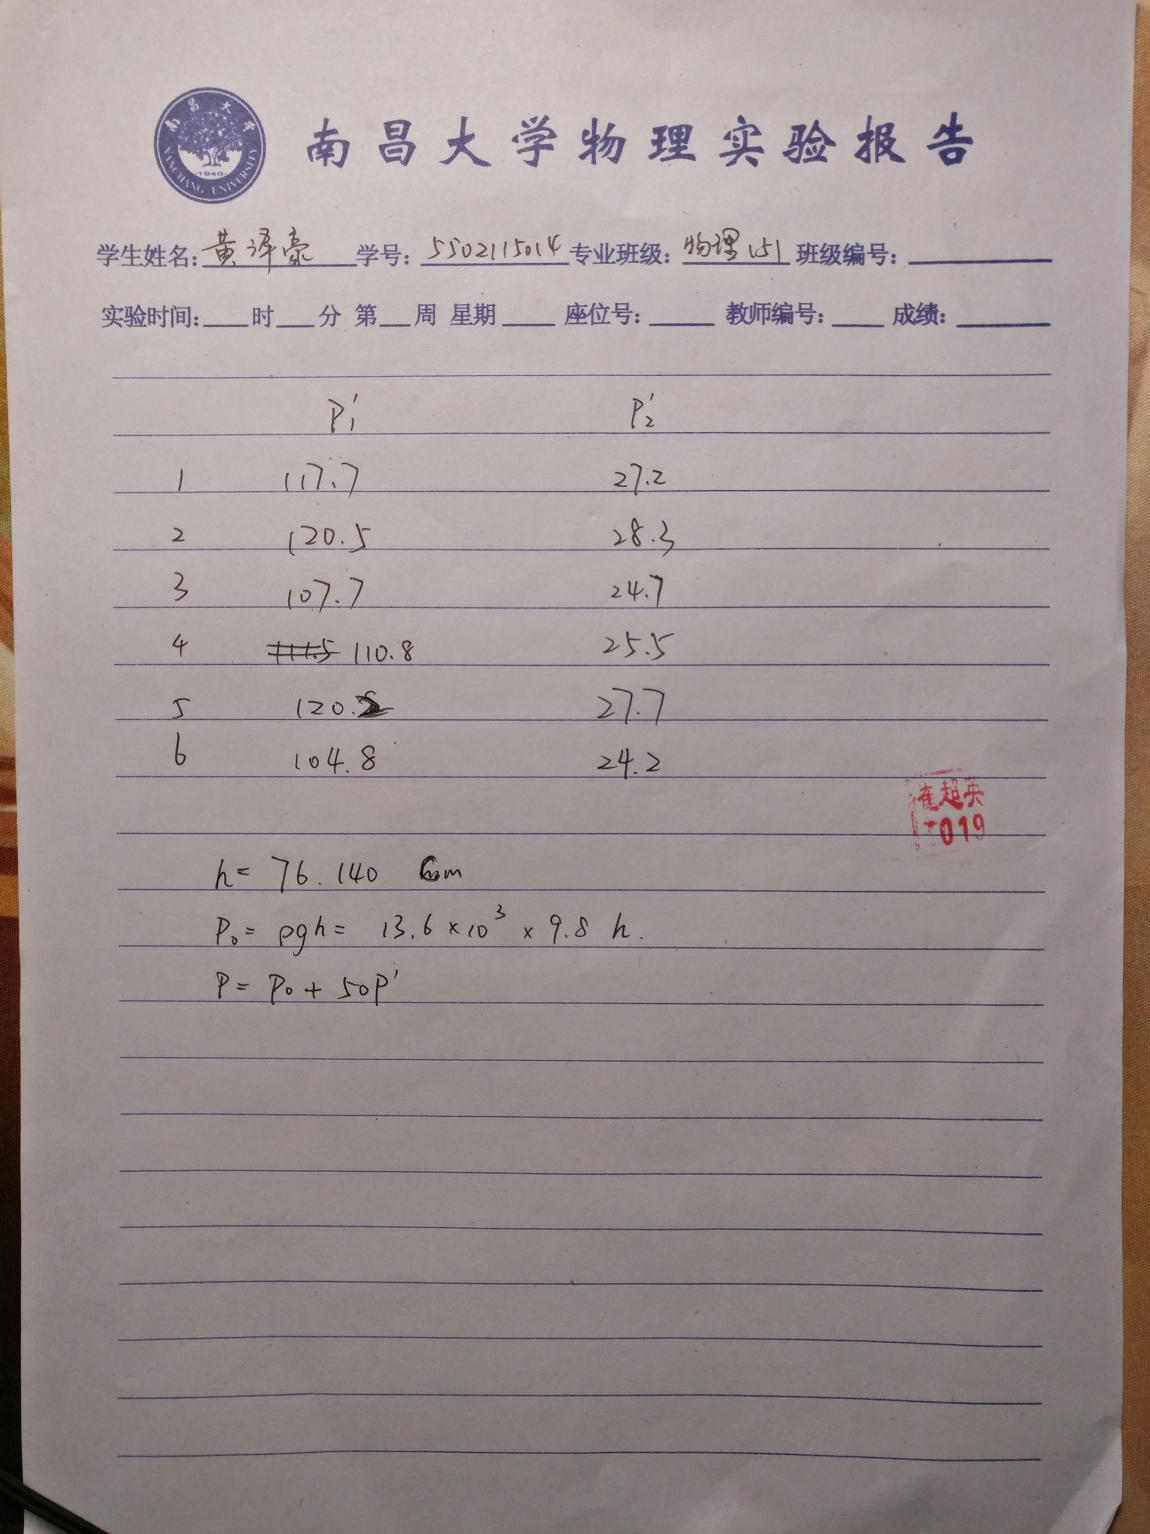 南昌大学
NANCHANG UNIVERSITY
·1940·
南昌大学物理实验报告
学生姓名: 黄泽豪 学号: 5502115014 专业班级: 物理151 班级编号:
实验时间: 时 分 第 周 星期 座位号: 教师编号: 成绩:
P₁′ P₂′
1 117.7 27.2
2 120.5 28.3
3 107.7 24.7
4 111.5 110.8 25.5
5 120.2 27.7
6 104.8 24.2
崔超英
T019
h= 76.140 cm
P₀= ρgh= 13.6×10³ × 9.8 h.
P= P₀+ 50P′